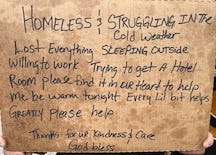 HOMELESS & STRUGGLING IN THE
Cold weather
Lost Everything SLEEPING OUTSIDE
Willing to work Trying to get A Hotel
Room please find it in our Heart to help
Me be warm tonight Every Lil bit helps
GREATLY Please help
Thanks for ur kindness & Care
God bless